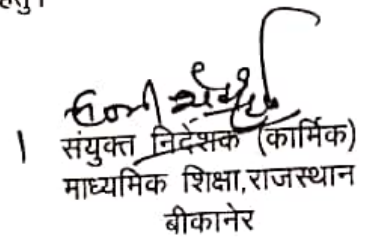 हेतु।
संयुक्त निदेशक (कार्मिक)
माध्यमिक शिक्षा,राजस्थान
बीकानेर